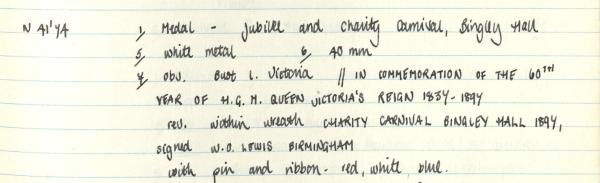 N 41'74 1, Medal - Jubilee and charity Carnival, Bingley Hall
5, white metal 6, 40 mm
7, obv. Bust L. Victoria // IN COMMEMORATION OF THE 60TH
YEAR OF H.G.M. QUEEN VICTORIA'S REIGN 1837-1897
rev. within wreath CHARITY CARNIVAL BINGLEY HALL 1897,
signed W.O. LEWIS BIRMINGHAM
with pin and ribbon - red, white, blue.